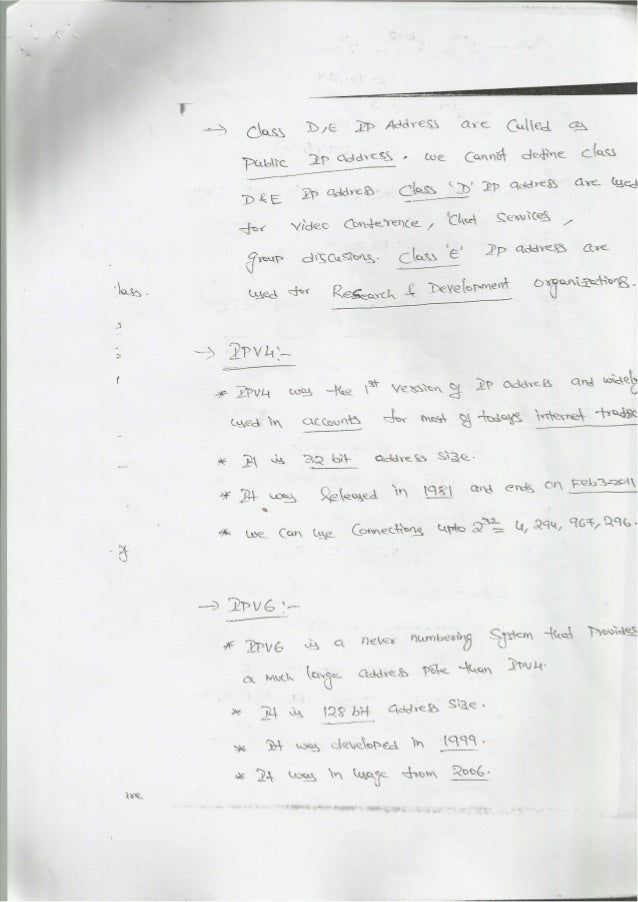 → Class D,E IP Address are Called as
Public IP address. we Cannot define class
D & E IP address. Class 'D' IP address are used
for Video Conference, 'Chat Services,
group discusions. Class 'E' IP address are
lass.
used for Research & Development organizations.
s
→ IPV4:-
* IPV4 was the 1st Version of IP address and widely
used in accounts for most of todays internet
* It is 32 bit address size.
* It was Released in 1981 and ends on Feb 3-2011
* we can use Connections upto 2^32 = 4,294,967,296.
→ IPV6:-
* IPV6 is a never numbering System that Provides
a Much large address than IPV4.
* It is 128 bit address size.
* It was developed in 1999.
* It was in usage from 2006.